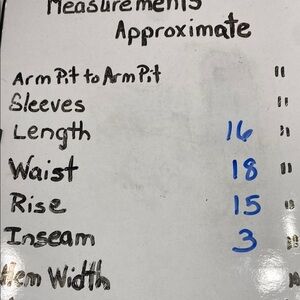 Measurements
Approximate
Arm Pit to Arm Pit "
Sleeves "
Length 16 "
Waist 18 "
Rise 15 "
Inseam 3 "
Hem Width "